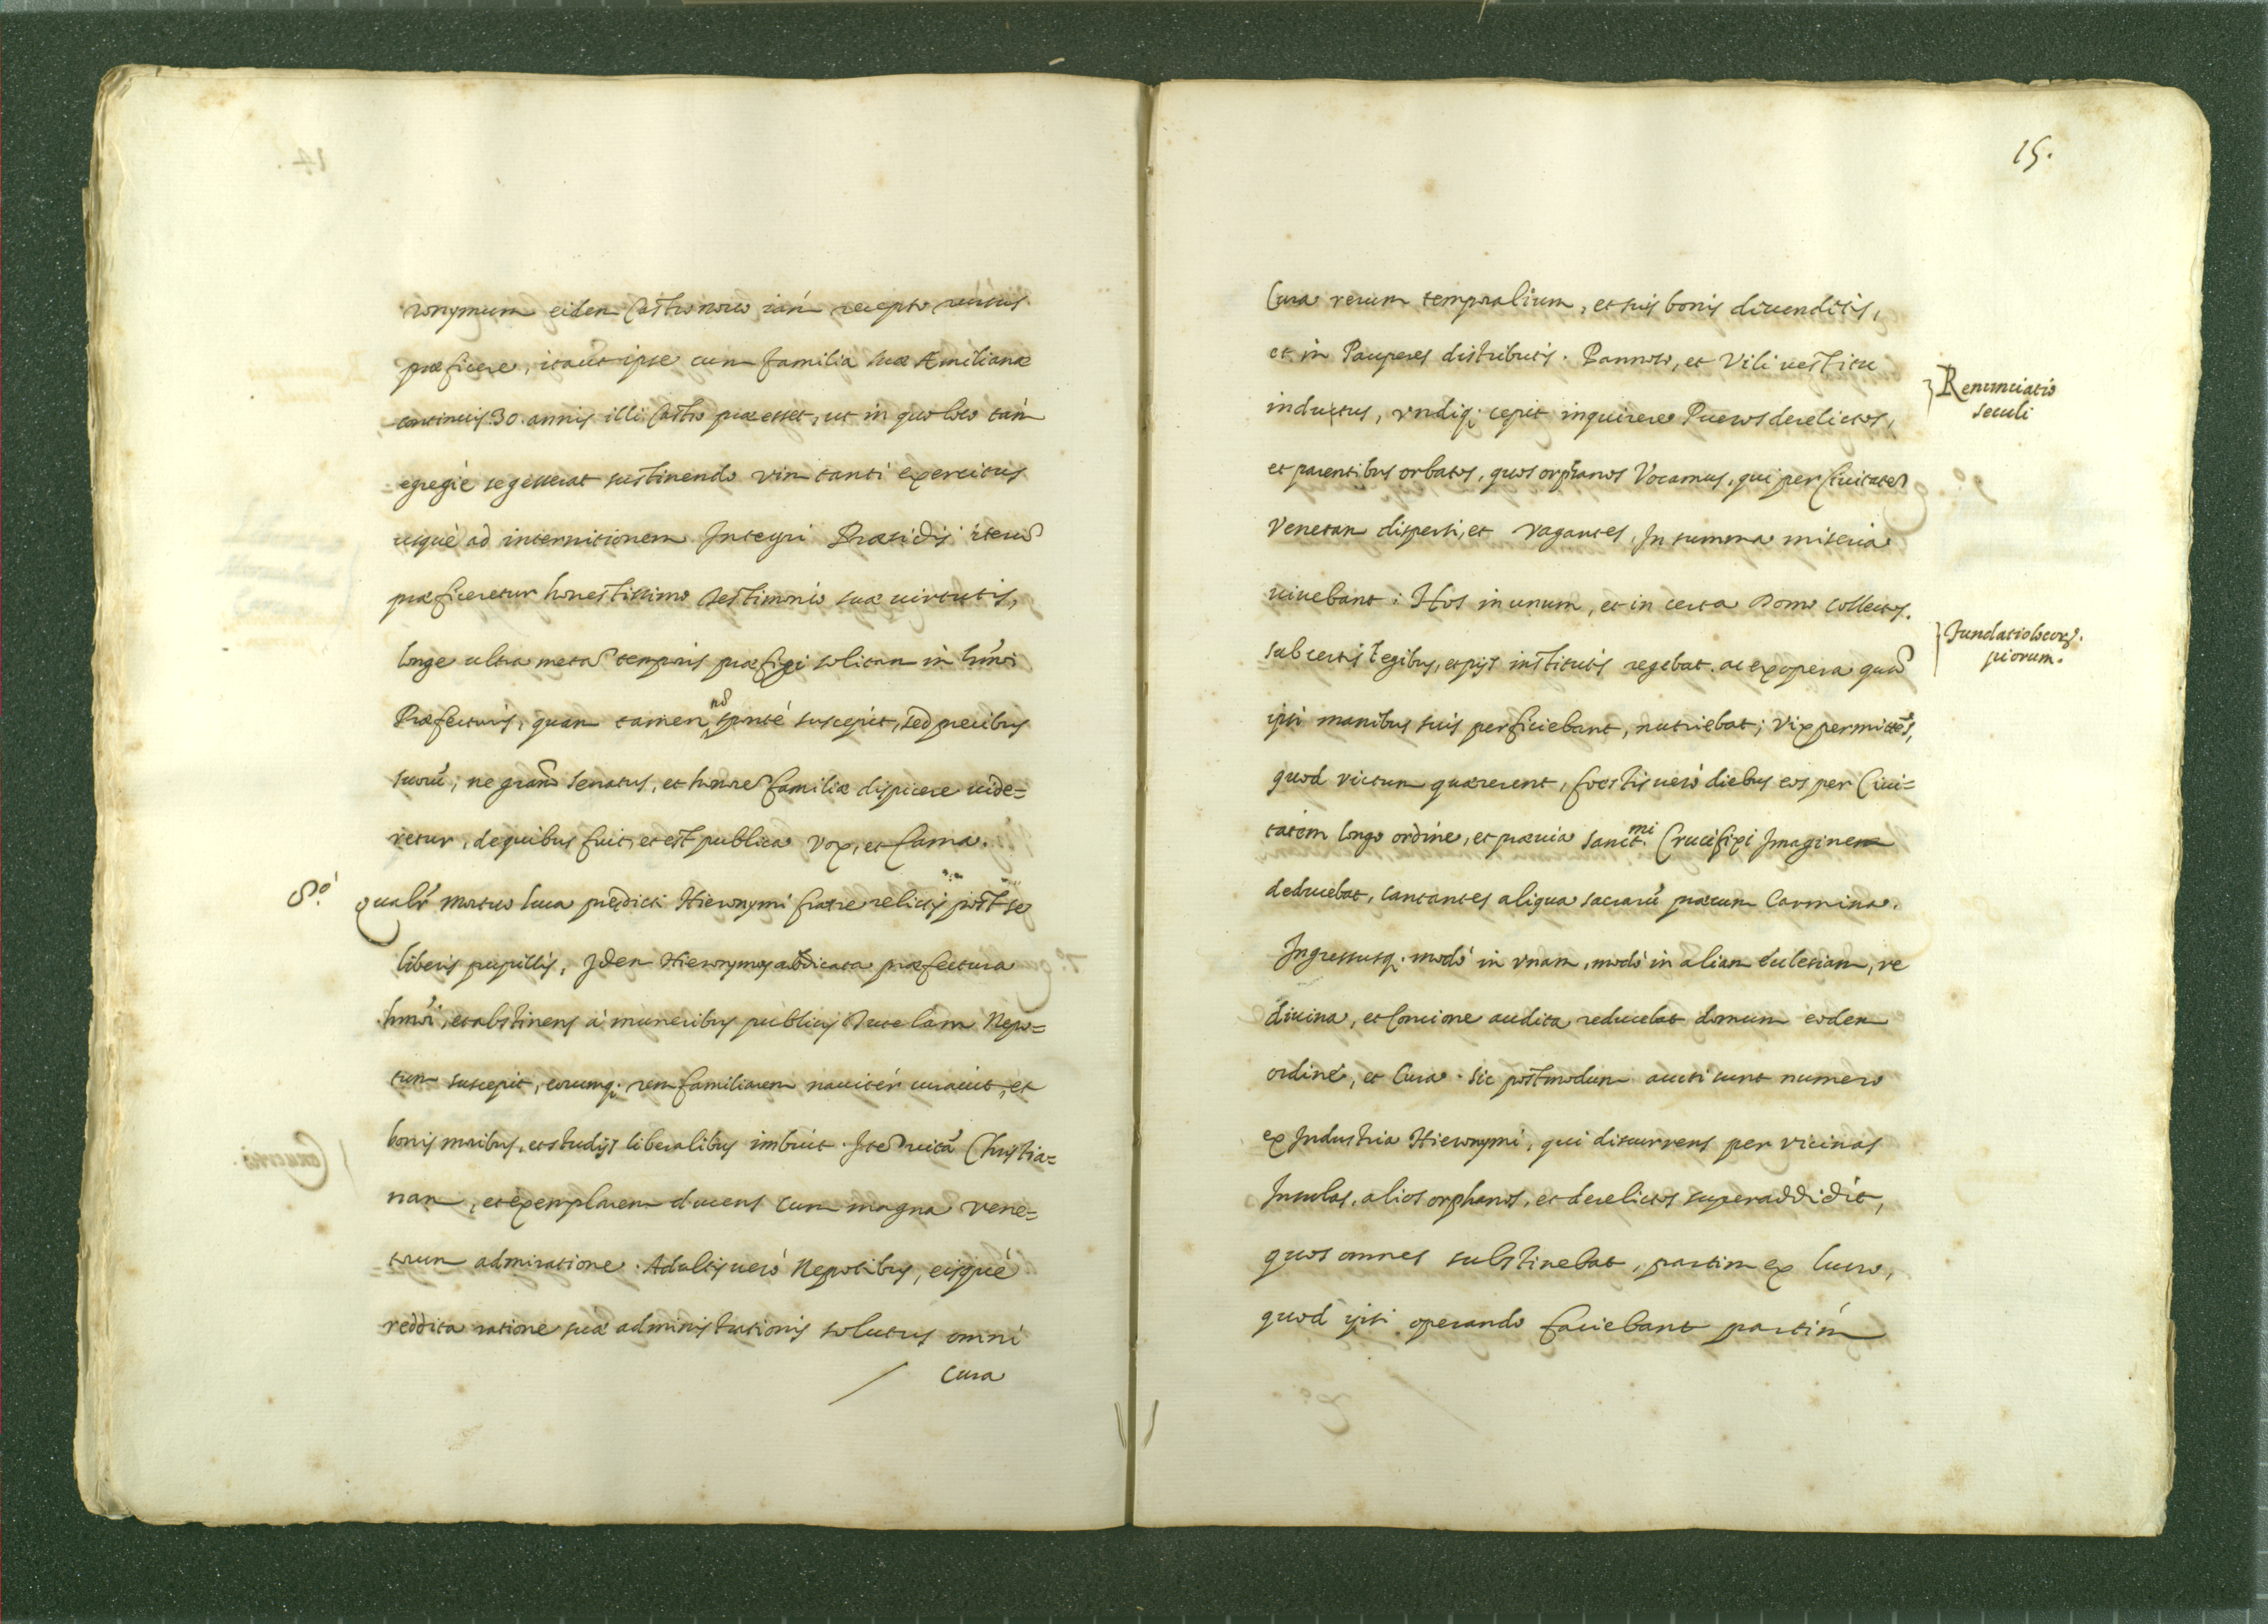 ronymum eidem Castro nouo iam recepto rursus
præficere, itaut ipse cum familia sua Æmiliana
continuis 30. annis illi Castro præesset, ut in quo loco tam
egregiè se gesserat sustinendo vim tanti exercitus
usquè ad internitionem Integri Præsidij iterũ
præficeretur honestissimo testimonio suæ uirtutis,
longe ultra metas temporis præfigi solitam in hmõi
Præfecturis, quam tamen nõ spontè suscepit, sed precibus
suorũ, ne gram̃ senatus, et honorẽ familiæ dispicere uide=
retur, de quibus fuit, et est publica vox, et fama.
8.º qualr̃ mortuo luca prędicti Hieronymi fratre relictis post se
liberis pupillis, Idem Hieronymus abdicata præfectura
hmõi, et abstinens à muneribus publicis tutelam Nepo=
tum suscepit, eorumq. rem familiarem nauitèr curauit, et
bonis moribus, et studijs liberalibus imbuit. Itẽ uitã Christia=
nam, et exemplarem ducens cum magna Vene=
torum admiratione. Adultis uerò Nepotibus, eisquè
reddita ratione suæ administrationis solutus omni
cura
15.
Cura rerum temporalium, et suis bonis diuenditis,
et in Pauperes distributis. Pannoso, et Vili uestitu
Renunciatio
seculi
inductus, vndiq. cepit inquirere Pueros derelictos,
et parentibus orbatos, quos orphanos Vocamus, qui per Ciuitatẽ
Venetam dispersi, et vagantes, In summa miseria
uiuebant: Hos in unum, et in certa Domo collectos.
fundatio locorũ.
piorum.
sub certis legibus, et pijs institutis regebat. ac ex opera quã
ipsi manibus suis perficiebant, nutriebat; Vix permittẽs,
quod victum quærerent, foestis uerò diebus eos per Ciui=
tatem longo ordine, et præuia Sanct.mi Crucifixi Imaginem
deducebat, cantantes aliqua sacrarũ præcum Carmina.
Ingressusq. modò in vnam, modò in aliam Ecclesiam, re
diuina, et Concione audita reducebat domum eodem
ordinè, et Cura. Sic postmodum aucti sunt numero
ex Industria Hieronymi, qui discurrens per vicinas
Insulas, alios orphanos, et derelictos superaddidit,
quos omnes substinebat, partim ex lucro,
quod ipsi operando faciebant partim